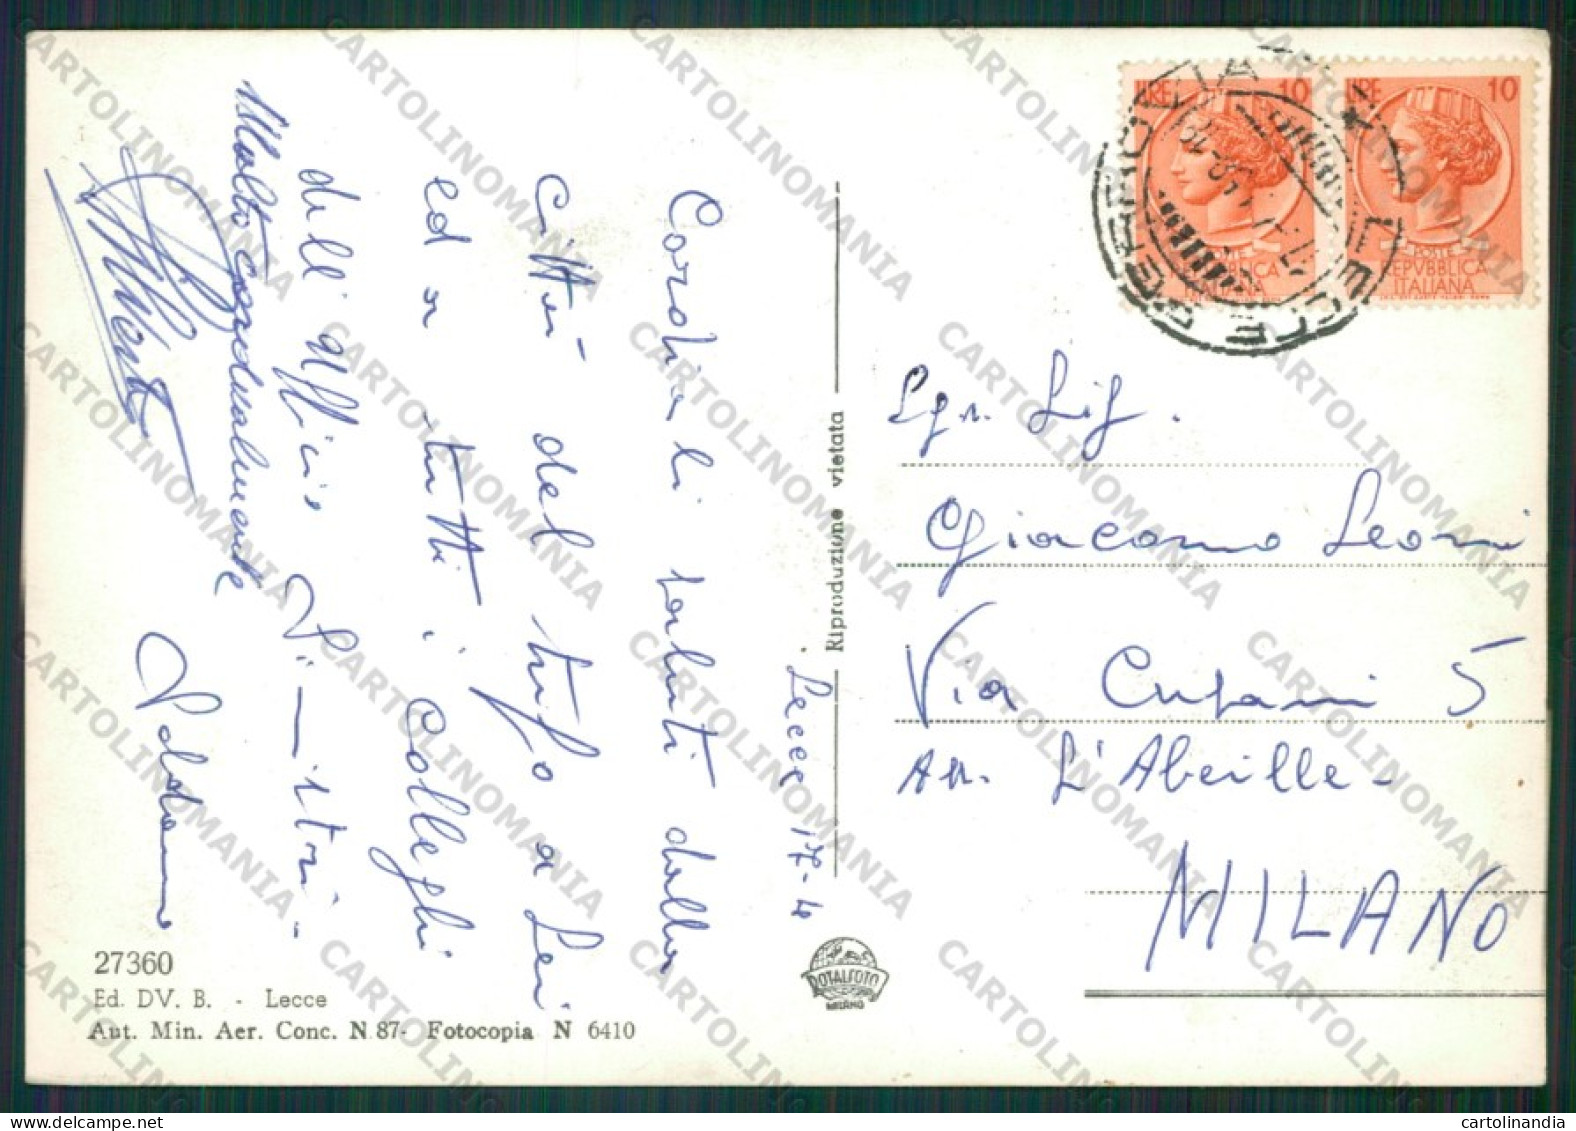 Lecce 17-4
Cordiali saluti dalla
città del tufo a Lei
ed a tutti i Colleghi
dell'ufficio
Molto cordialmente
LIRE 10
LIRE 10
POSTE
REPVBBLICA
ITALIANA
LECCE FERROVIA
Riproduzione vietata
Egr. Sig.
Giacomo Leoni
Via Cusani 5
Ass. L'Abeille -
MILANO
27360
Ed. DV. B. - Lecce
Aut. Min. Aer. Conc. N. 87- Fotocopia N 6410
ROTALFOTO
MILANO
CARTOLINOMANIA
cartolinandia